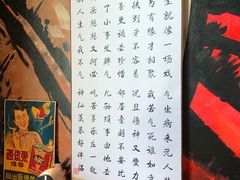 生就像一场戏 气出病来无人
为有缘才相聚 我若气死谁如
老不容易 况且伤神又费力
否更该去珍惜 邻居亲朋不要比
了小事发脾气 儿孙琐事由他去
头想想又何必 吃苦享乐在一起
人生气我不气 神仙羡慕好伴侣